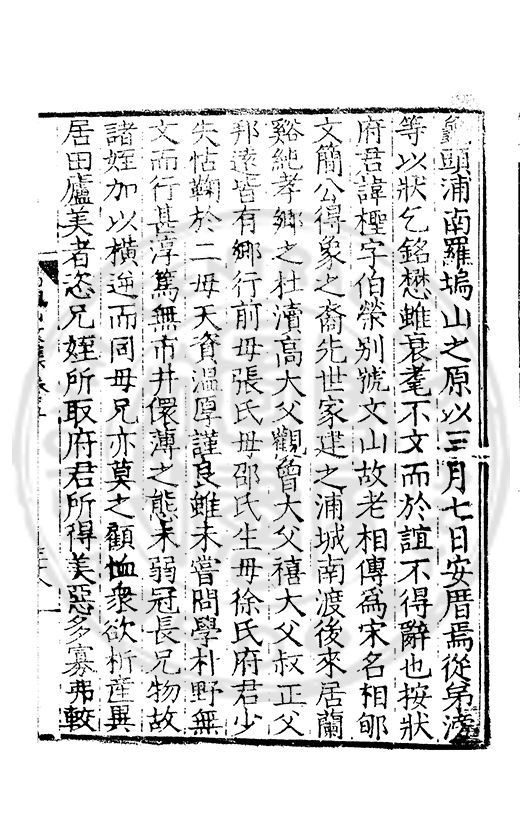 龜頭浦南羅塢山之原以三月七日安厝焉從弟滂
等以狀乞銘懋雖衰耄不文而於誼不得辭也按狀
府君諱樫字伯榮别號文山故老相傳爲宋名相郇
文簡公得象之裔先世家建之浦城南渡後來居蘭
谿純孝鄉之杜瀆高大父觀曾大父禧大父叔正父
邦達皆有鄉行前母張氏母邵氏生母徐氏府君少
失怙鞠於二母天資溫厚謹良雖未嘗問學朴野無
文而行甚淳篤無市井儇薄之態未弱冠長兄物故
諸姪加以横逆而同母兄亦莫之顧恤衆欲析產異
居田廬美者恣兄姪所取府君所得美惡多寡弗較